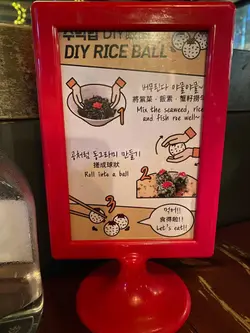 주먹밥 DIY
DIY RICE BALL
버무린다 야물야물~
將紫菜、飯素、蟹籽撈勻
Mix the seaweed, rice
and fish roe well~
1
공처럼 동그라미 만들기
搓成球狀
Roll into a ball
2
3
먹어!!
食得啦!!
Let's eat!!